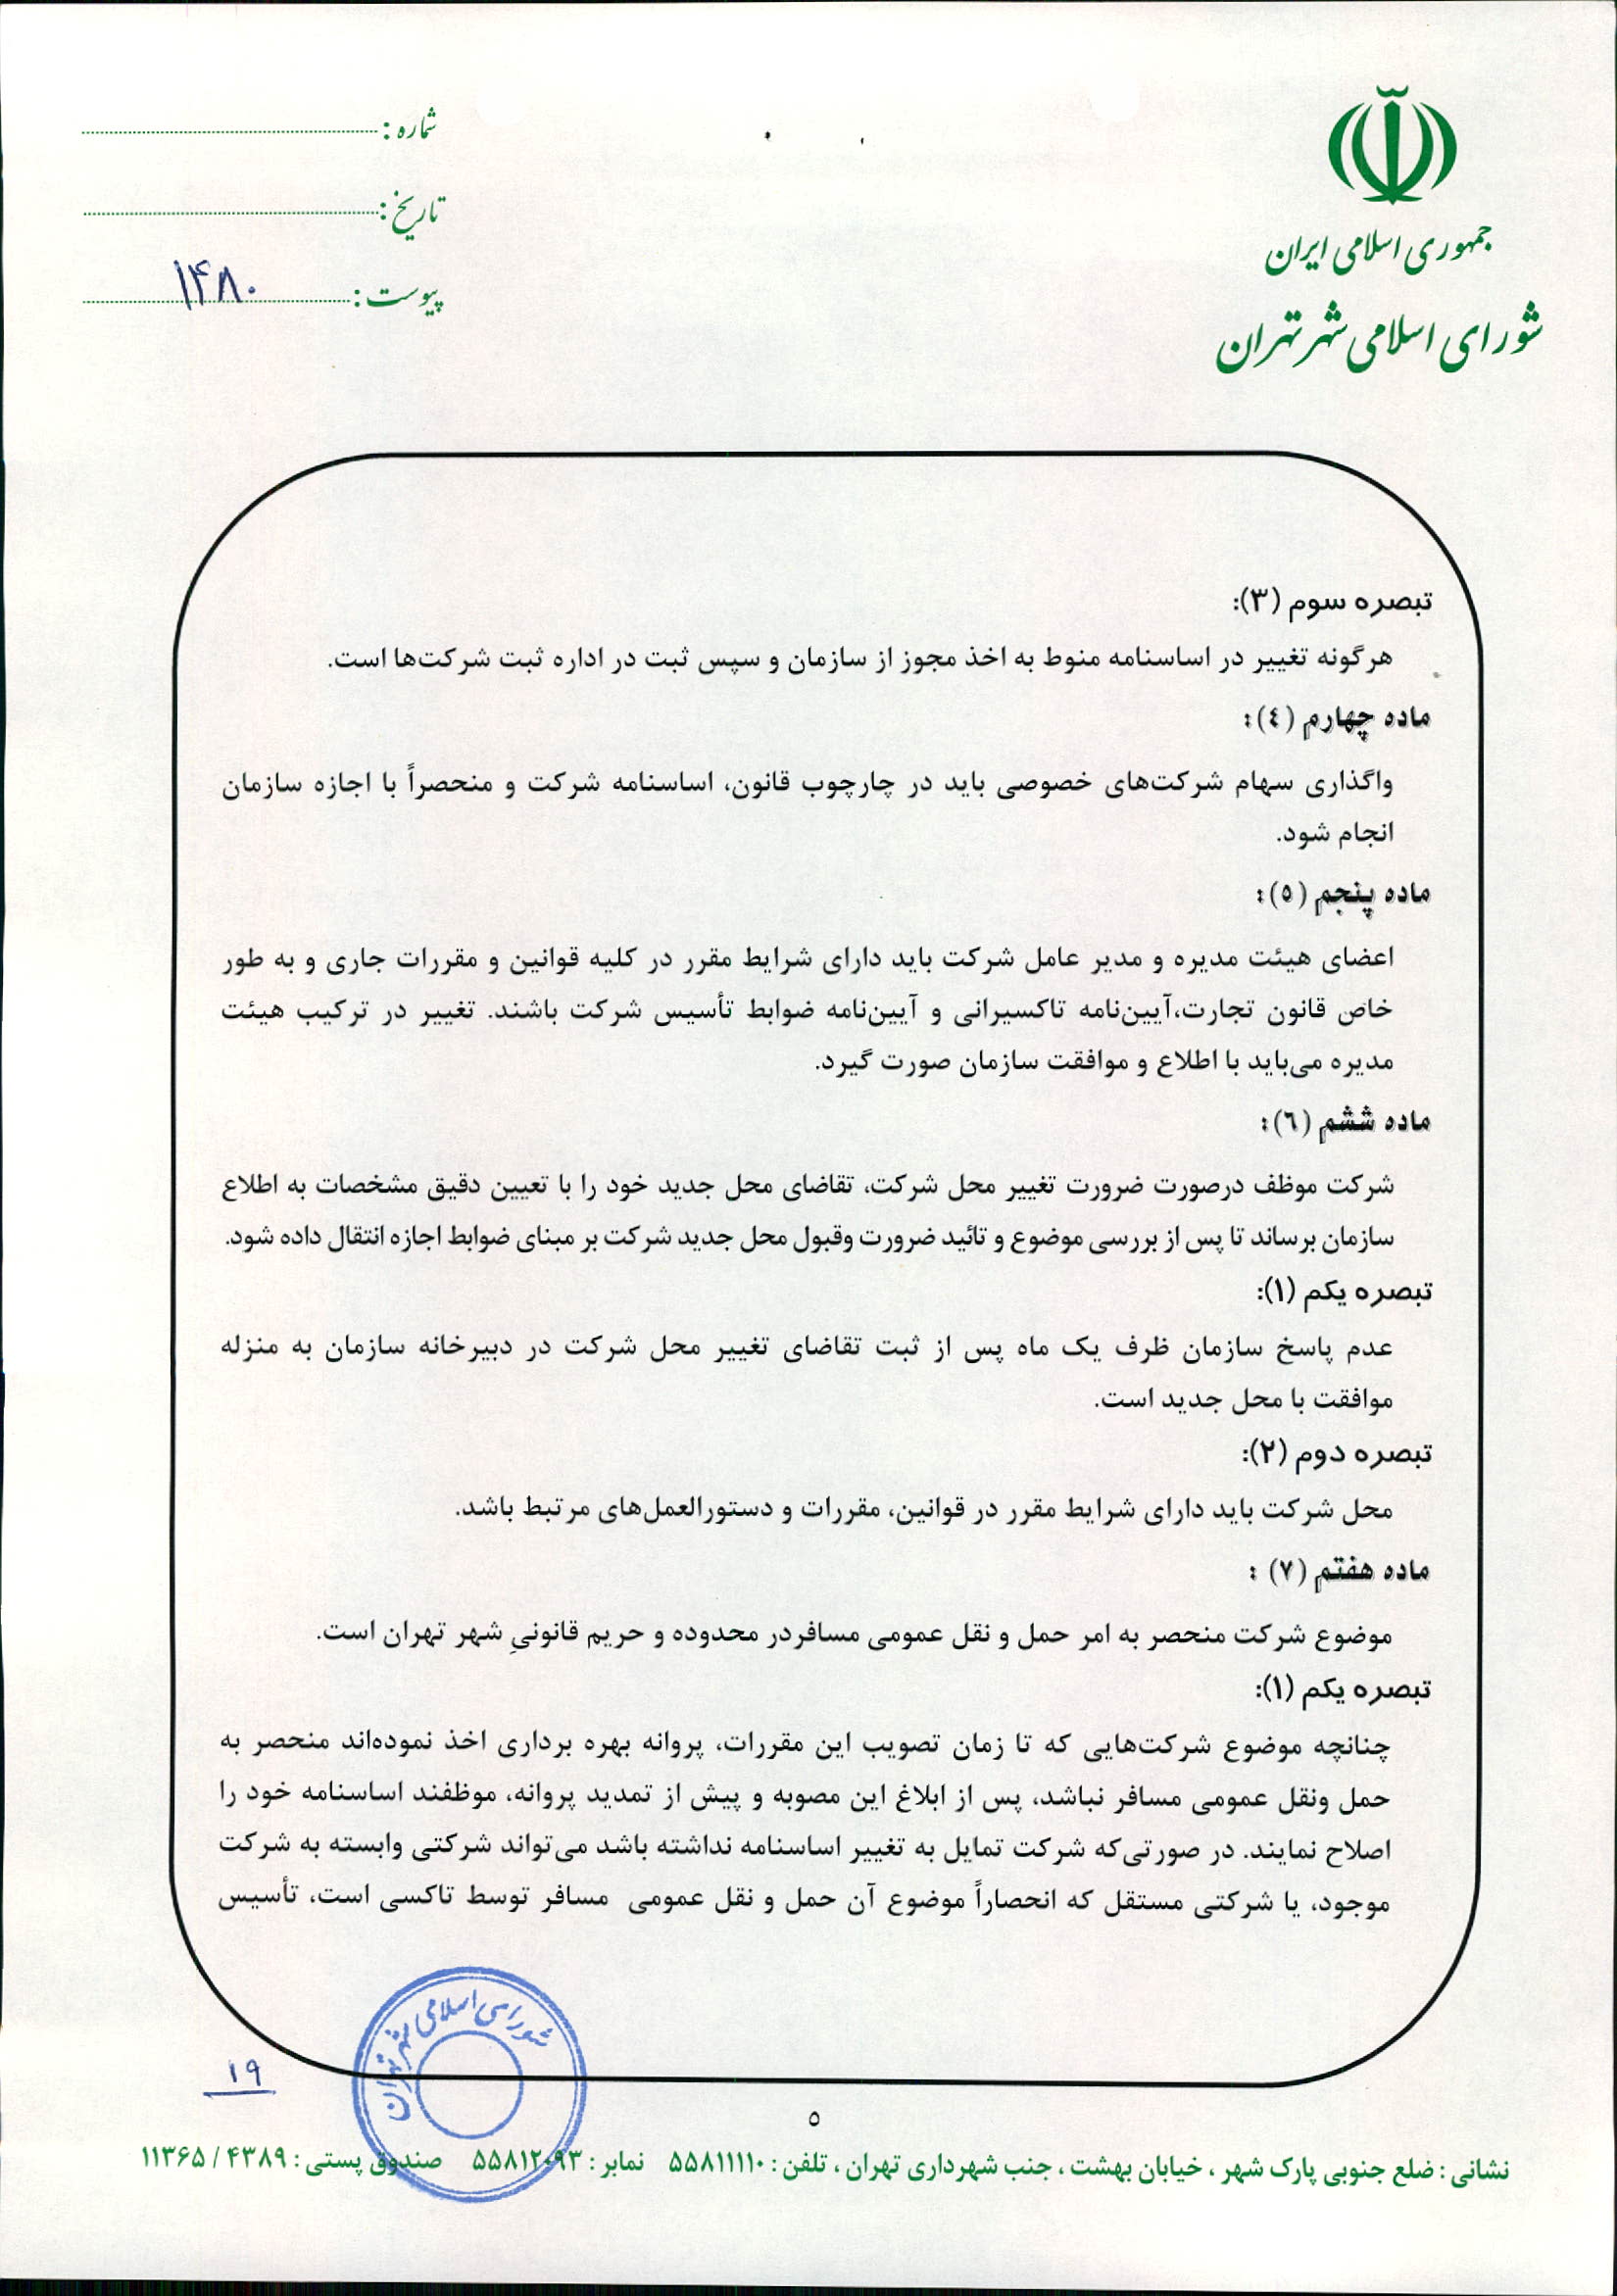 جمهوری اسلامی ایران
شورای اسلامی شهر تهران
شماره :
تاریخ :
پیوست : ۱۴۸۰
تبصره سوم (۳):
هرگونه تغییر در اساسنامه منوط به اخذ مجوز از سازمان و سپس ثبت در اداره ثبت شرکت‌ها است.
ماده چهارم (٤):
واگذاری سهام شرکت‌های خصوصی باید در چارچوب قانون، اساسنامه شرکت و منحصراً با اجازه سازمان
انجام شود.
ماده پنجم (٥):
اعضای هیئت مدیره و مدیر عامل شرکت باید دارای شرایط مقرر در کلیه قوانین و مقررات جاری و به طور
خاص قانون تجارت،آیین‌نامه تاکسیرانی و آیین‌نامه ضوابط تأسیس شرکت باشند. تغییر در ترکیب هیئت
مدیره می‌باید با اطلاع و موافقت سازمان صورت گیرد.
ماده ششم (٦):
شرکت موظف درصورت ضرورت تغییر محل شرکت، تقاضای محل جدید خود را با تعیین دقیق مشخصات به اطلاع
سازمان برساند تا پس از بررسی موضوع و تائید ضرورت وقبول محل جدید شرکت بر مبنای ضوابط اجازه انتقال داده شود.
تبصره یکم (۱):
عدم پاسخ سازمان ظرف یک ماه پس از ثبت تقاضای تغییر محل شرکت در دبیرخانه سازمان به منزله
موافقت با محل جدید است.
تبصره دوم (۲):
محل شرکت باید دارای شرایط مقرر در قوانین، مقررات و دستورالعمل‌های مرتبط باشد.
ماده هفتم (۷) :
موضوع شرکت منحصر به امر حمل و نقل عمومی مسافردر محدوده و حریم قانونیِ شهر تهران است.
تبصره یکم (۱):
چنانچه موضوع شرکت‌هایی که تا زمان تصویب این مقررات، پروانه بهره برداری اخذ نموده‌اند منحصر به
حمل ونقل عمومی مسافر نباشد، پس از ابلاغ این مصوبه و پیش از تمدید پروانه، موظفند اساسنامه خود را
اصلاح نمایند. در صورتی‌که شرکت تمایل به تغییر اساسنامه نداشته باشد می‌تواند شرکتی وابسته به شرکت
موجود، یا شرکتی مستقل که انحصاراً موضوع آن حمل و نقل عمومی مسافر توسط تاکسی است، تأسیس
شورای اسلامی شهر تهران
۱۹
٥
نشانی : ضلع جنوبی پارک شهر ، خیابان بهشت ، جنب شهرداری تهران ، تلفن : ۵۵۸۱۱۱۱۰ نمابر : ۵۵۸۱۲۰۹۳ صندوق پستی : ۴۳۸۹ / ۱۱۳۶۵